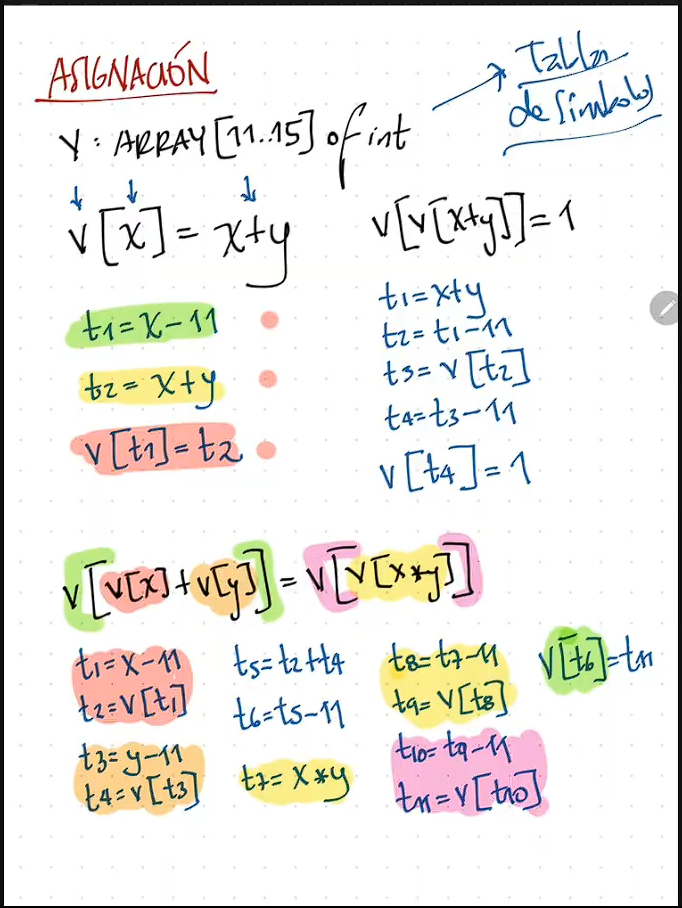 ASIGNACIÓN
Tabla
de Símbolos
V : ARRAY [11..15] of int
v[x] = x+y
t1 = x-11
t2 = x+y
v[t1] = t2
v[v[x+y]] = 1
t1 = x+y
t2 = t1-11
t3 = v[t2]
t4 = t3-11
v[t4] = 1
v[v[x]+v[y]] = v[v[x*y]]
t1 = x-11
t2 = v[t1]
t3 = y-11
t4 = v[t3]
t5 = t2+t4
t6 = t5-11
t7 = x*y
t8 = t7-11
t9 = v[t8]
t10 = t9-11
t11 = v[t10]
v[t6] = t11